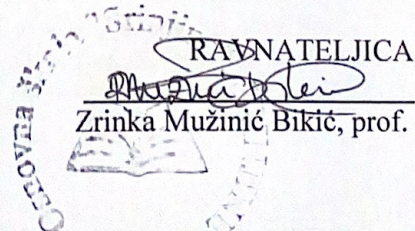 RAVNATELJICA
Zrinka Mužinić Bikić, prof.
Osnovna